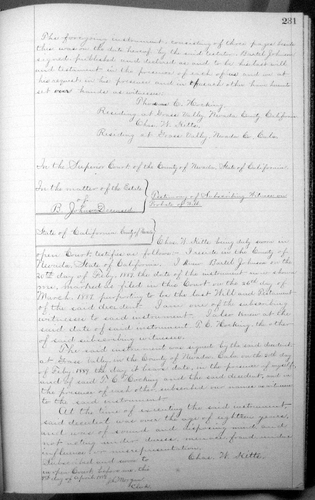 231
The foregoing instrument, consisting of three pages besides
this was on the date hereof by the said testator Butel Johnson
signed, published and declared as and to be his last will
and testament in the presence of each of us and we at
his request in his presence and in presence of each other have hereunto
set our hands as witnesses
Thomas C. Hocking.
Residing at Grass Valley Nevada County California
Chas. W. Kitts.
Residing at Grass Valley Nevada Co. Cala.
In the Superior Court of the County of Nevada State of California.
In the matter of the Estate
of
B. Johnson Deceased
Testimony of Subscribing Witness on
Probate of Will
State of California County of Nevada
Chas. W. Kitts being duly sworn in
open Court, testifies as follows: I reside in the County of
Nevada, State of California. I knew Butel Johnson on the
20th day of Feby. 1885 the date of the instrument now shown
me, marked as filed in this Court on the 26th day of
March 1885 purporting to be the last Will and Testament
of the said decedent. I am one of the subscribing
witnesses to said instrument. I also knew at the
said date of said instrument T. C. Hocking, the other
of said subscribing witnesses.
The said instrument was signed by the said decedent
at Grass Valley in the County of Nevada Cala on the
of Feby. the day it bears date, in the presence of myself,
and of said T. C. Hocking and the said decedent, and in
the presence of each other subscribed our names as witnesses
to the said instrument.
At the time of executing the said instrument
said decedent was over the age of eighteen years,
and was of sound and disposing mind and
not acting under duress, menace, fraud, undue
influence or misrepresentation
Subscribed and sworn to
Chas. W. Kitts,
in open Court before me, this
day of April
Clerk